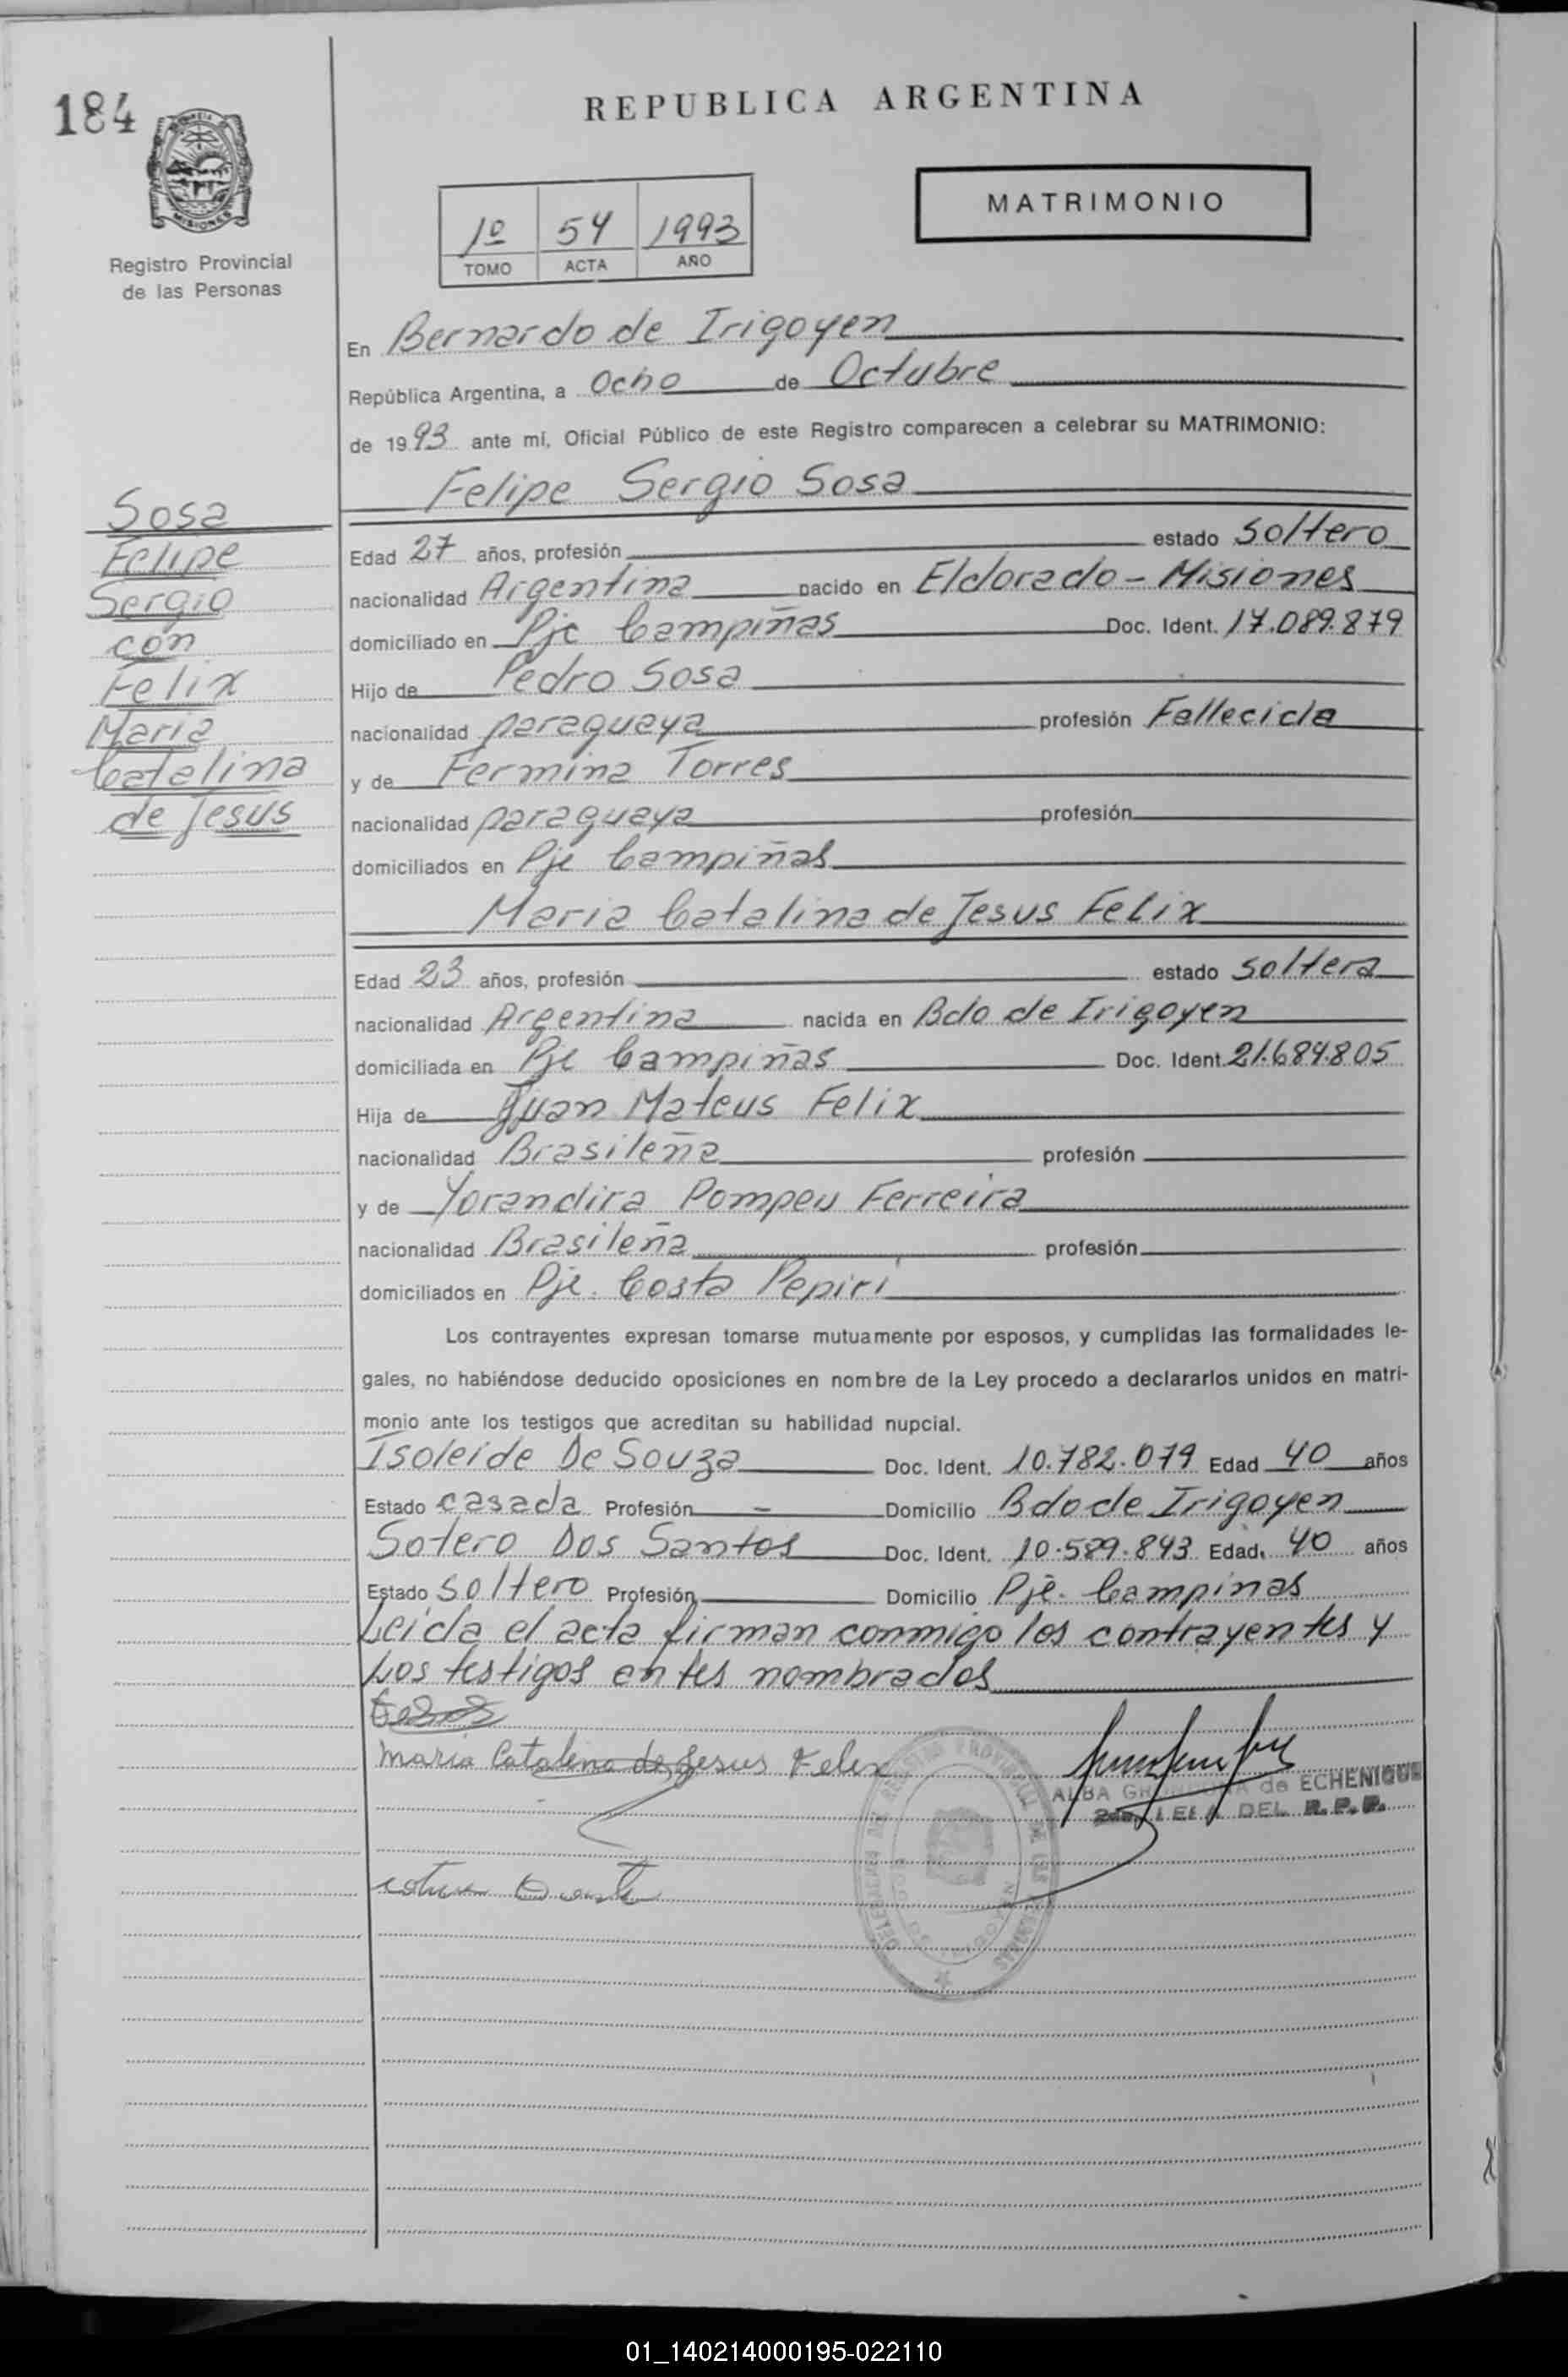 184
REPUBLICA ARGENTINA
MISIONES
Registro Provincial
de las Personas
1º 54 1993
TOMO ACTA AÑO
MATRIMONIO
En Bernardo de Irigoyen
República Argentina, a Ocho de Octubre
de 1993 ante mí, Oficial Público de este Registro comparecen a celebrar su MATRIMONIO:
Sosa
Felipe
Sergio
con
Felix
Maria
Catalina
de Jesus
Felipe Sergio Sosa
Edad 27 años, profesión estado Soltero
nacionalidad Argentina nacido en Eldorado - Misiones
domiciliado en Pje Campiñas Doc. Ident. 17.089.879
Hijo de Pedro Sosa
nacionalidad paraguaya profesión Fallecida
y de Fermina Torres
nacionalidad paraguaya profesión
domiciliados en Pje Campiñas
Maria Catalina de Jesus Felix
Edad 23 años, profesión estado soltera
nacionalidad Argentina nacida en Bdo de Irigoyen
domiciliada en Pje Campiñas Doc. Ident. 21.684.805
Hija de Juan Mateus Felix
nacionalidad Brasileña profesión
y de Yorandira Pompeu Ferreira
nacionalidad Brasileña profesión
domiciliados en Pje. Costa Pepiri
Los contrayentes expresan tomarse mutuamente por esposos, y cumplidas las formalidades le-
gales, no habiéndose deducido oposiciones en nombre de la Ley procedo a declararlos unidos en matri-
monio ante los testigos que acreditan su habilidad nupcial.
Isoleide De Souza Doc. Ident. 10.782.079 Edad 40 años
Estado casada Profesión - Domicilio Bdo de Irigoyen
Sotero Dos Santos Doc. Ident. 10.589.843 Edad 40 años
Estado Soltero Profesión Domicilio Pje. Campinas
Leida el acta firman conmigo los contrayentes y
Los testigos antes nombrados
Maria Catalina de Jesus Felix
ALBA de ECHENIQUE
DEL R.P.P.
01_140214000195-022110